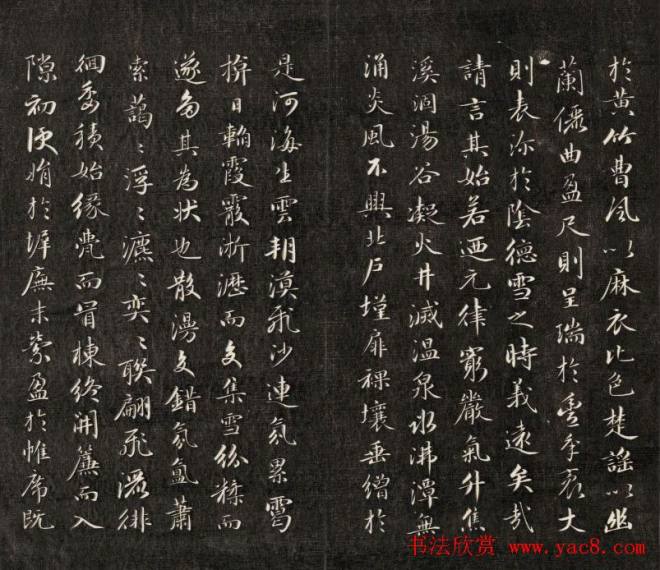 於黃竹曹風以麻衣比色楚謠以幽
蘭儷曲盈尺則呈瑞於豐年袤丈
則表沴於陰德雪之時義遠矣哉
請言其始若迺元律窮嚴氣升焦
溪涸湯谷凝火井滅溫泉冰沸潭無
涌炎風不興北戶墐扉裸壤垂繒於
是河海生雲朔漠飛沙連氛累靄
揜日韜霞霰淅瀝而交集雪紛糅而
遂多其為狀也散漫交錯氛氳蕭
索藹〻浮〻瀌〻奕〻聯翩飛灑徘
徊委積始緣甍而冒棟終開簾而入
隙初便娟於墀廡末縈盈於帷席既
书法欣赏 www.yac8.com